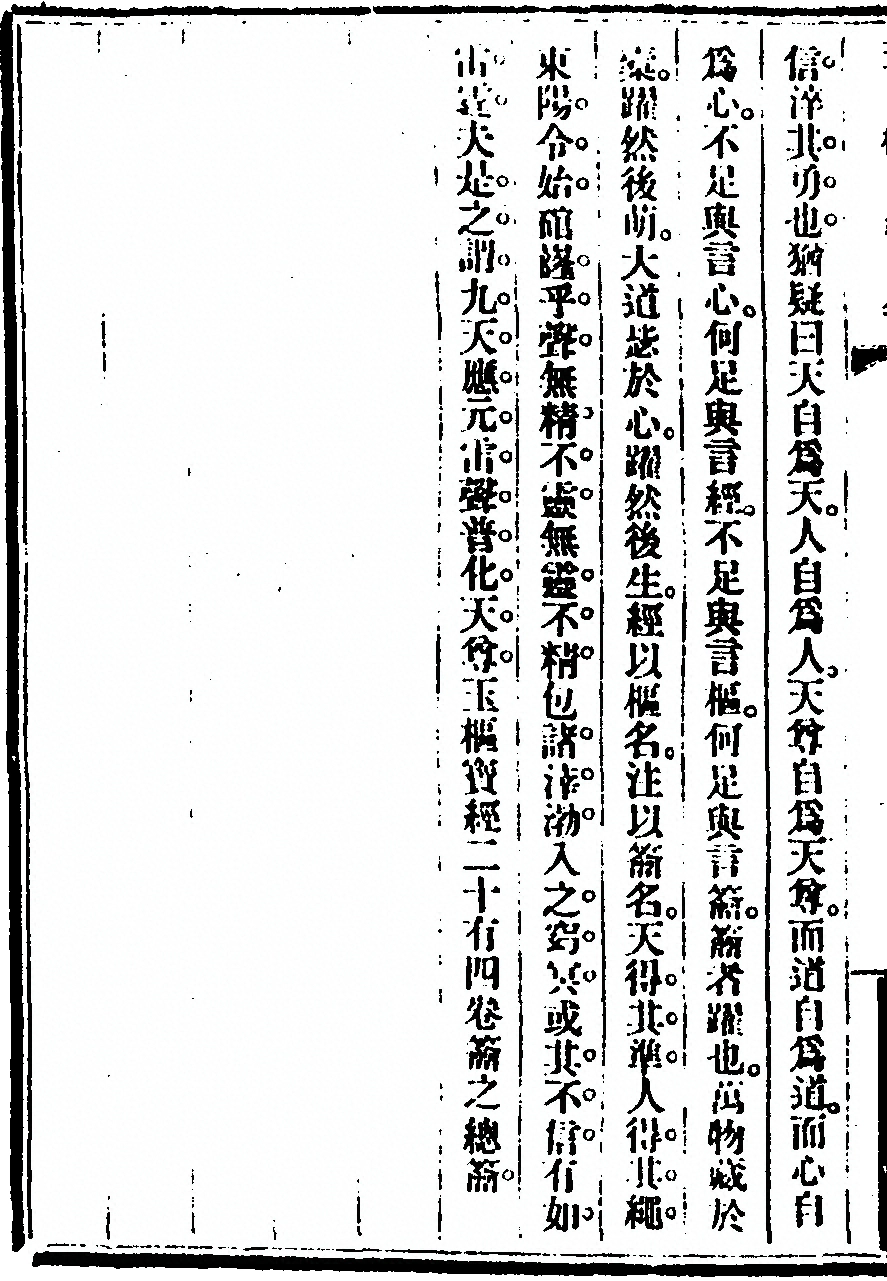 信淬其勇也猶疑曰天自爲天人自爲人天尊自爲天尊而道自爲道而心自
爲心不足與言心何足與言經不足與言樞何足與言籥籥者躍也萬物藏於
橐躍然後萌大道毖於心躍然後生經以樞名注以籥名天得其準人得其繩
東陽令始乎聲無精不靈無靈不精包諸渤入之窈冥或其不信有如
雷霆夫是之謂九天應元雷聲普化天尊玉樞寶經二十有四卷籥之總籥